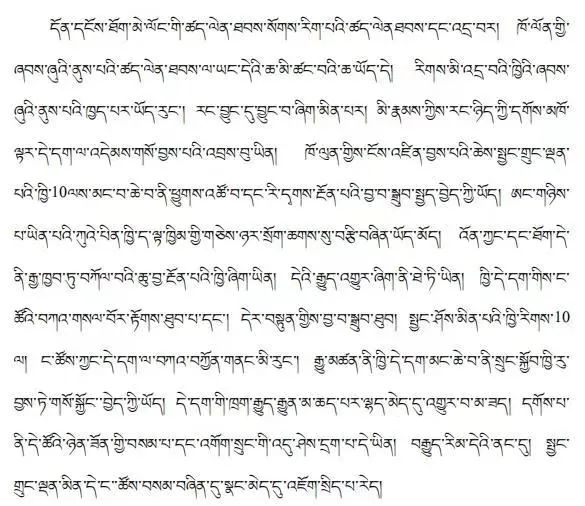 དོན་དངོས་ཐོག་མེ་ལོང་གི་ཚད་ལེན་ཐབས་སོགས་རིག་པའི་ཚད་ལེན་ཐབས་དང་འདྲ་བར། ཁོ་ལོན་གྱི་
ཞབས་ཞུའི་ནུས་པའི་ཚད་ལེན་ཐབས་ལ་ཡང་དེའི་ཆ་མི་ཚང་བའི་ཆ་ཡོད་དེ། རིགས་མི་འདྲ་བའི་ཁྱིའི་ཞབས་
ཞུའི་ནུས་པའི་ཁྱད་པར་ཡོད་རུང་། རང་བྱུང་དུ་བྱུང་བ་ཞིག་མིན་པར། མི་རྣམས་ཀྱིས་རང་ཉིད་ཀྱི་དགོས་མཁོ་
ལྟར་དེ་དག་ལ་འདེམས་གསོ་བྱས་པའི་འབྲས་བུ་ཡིན། ཁོ་ལུན་གྱིས་ངོས་འཛིན་བྱས་པའི་ཆེས་སྤྱང་གྲུང་ལྡན་
པའི་ཁྱི་10ལས་མང་བ་ཆེ་བ་ནི་ཕྱུགས་འཚོ་བ་དང་རི་དྭགས་རྔོན་པའི་བྱ་བ་སྒྲུབ་སྤྱད་བྱེད་ཀྱི་ཡོད། ཨང་གཉིས་
པ་ཡིན་པའི་ཀུའེ་པིན་ཁྱི་ད་ལྟ་ཁྱིམ་གྱི་གཅེས་ཉར་སྲོག་ཆགས་སུ་བརྩི་བཞིན་ཡོད་མོད། འོན་ཀྱང་དང་ཐོག་དེ་
ནི་རྒྱ་ཁྱབ་ཏུ་བཀོལ་བའི་ཆུ་བྱ་རྔོན་པའི་ཁྱི་ཞིག་ཡིན། དེའི་རྒྱུད་འགྱུར་ཞིག་ནི་ཐེ་ཏི་ཡིན། ཁྱི་དེ་དག་གིས་ང་
ཚོའི་བཀའ་གསལ་བོར་རྟོགས་ཐུབ་པ་དང་། དེར་བསྟུན་གྱིས་བྱ་བ་སྒྲུབ་ཐུབ། སྤྱང་ཤོས་མིན་པའི་ཁྱི་རིགས་10
ལ། ང་ཚོས་ཀྱང་དེ་དག་ལ་བཀའ་བཀྱོན་གནང་མི་རུང་། རྒྱུ་མཚན་ནི་ཁྱི་དེ་དག་མང་ཆེ་བ་ནི་སྲུང་སྐྱོབ་ཁྱི་རུ་
བྱས་ཏེ་གསོ་སྐྱོང་བྱེད་ཀྱི་ཡོད། དེ་དག་གི་ཁྲག་རྒྱུད་རྒྱུན་མ་ཆད་པར་ལྷད་མེད་དུ་འགྱུར་བ་མ་ཟད། དགོས་པ་
ནི་དེ་ཚོའི་ཉེན་ཟོན་གྱི་བསམ་པ་དང་འགོག་སྲུང་གི་འདུ་ཤེས་དྲག་པ་དེ་ཡིན། བརྒྱུད་རིམ་དེའི་ནང་དུ། སྤྱང་
གྲུང་ལྡན་མིན་དེ་ང་ཚོས་བསམ་བཞིན་དུ་སྣང་མེད་དུ་འཇོག་སྲིད་པ་རེད།